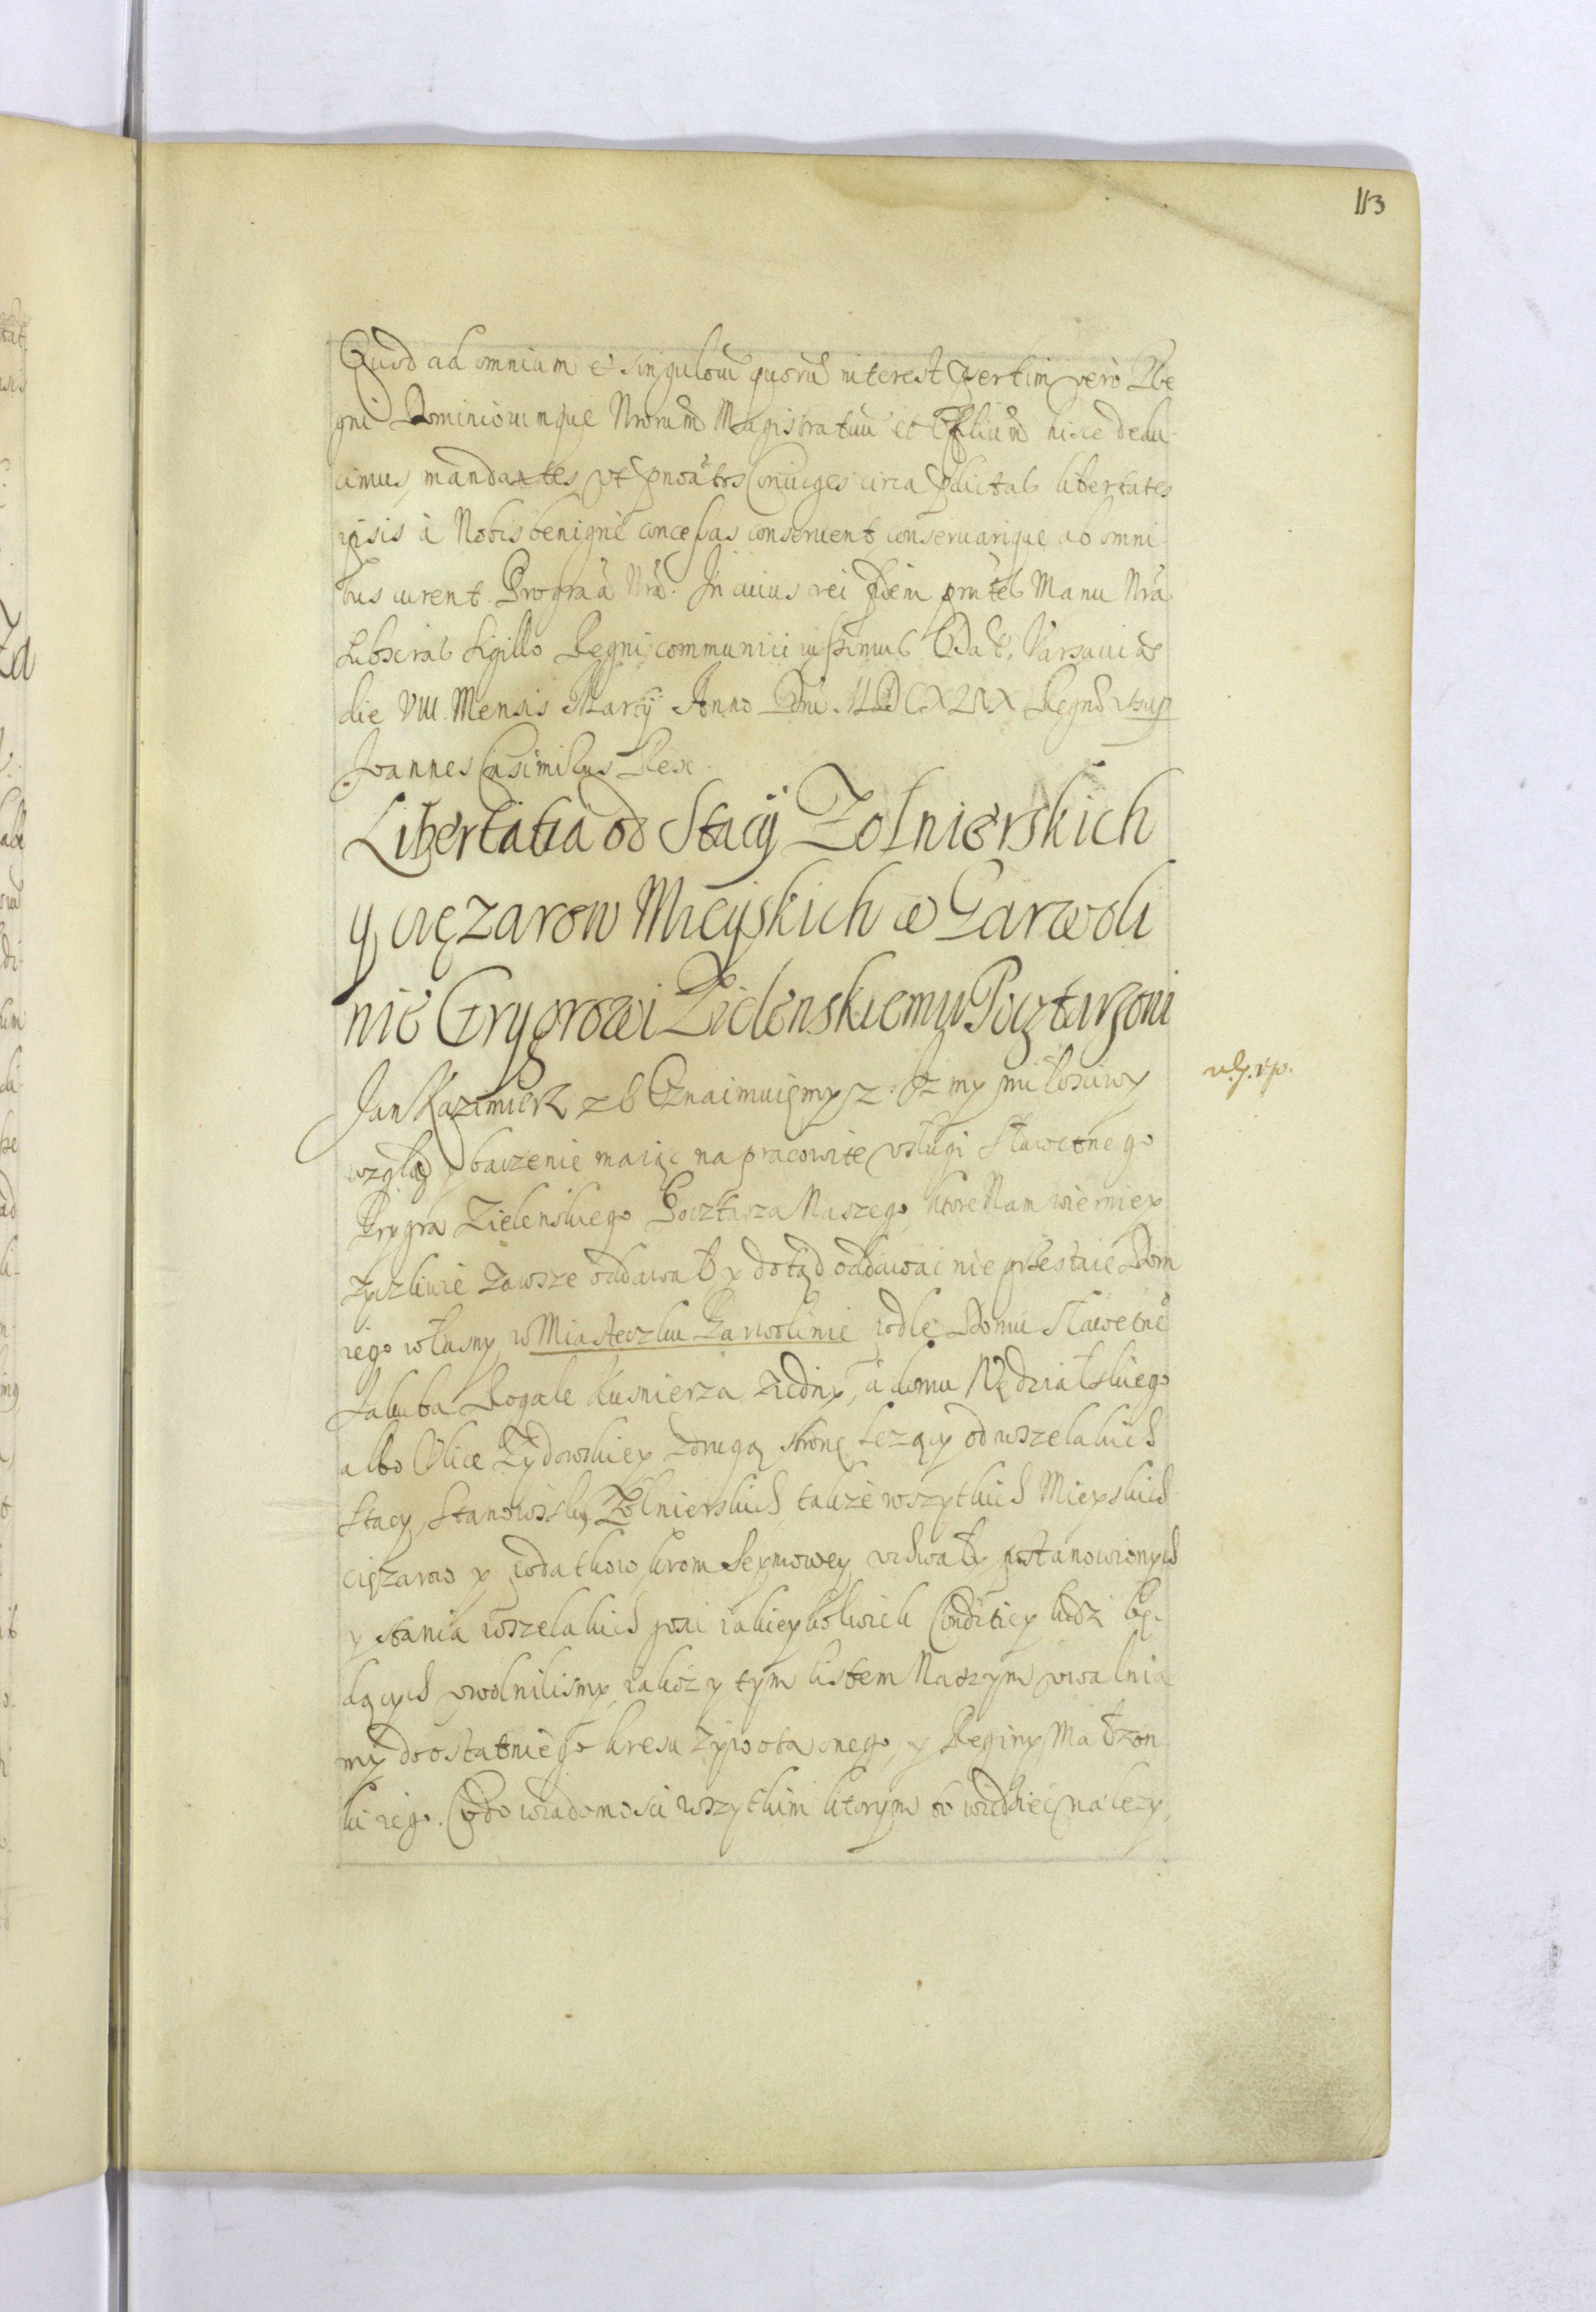 113
Quod ad omnium et singulorũ quorũ interest Pertim vero Re
gni Dominiorumque Nrorum Magistratuũ et Offliũm hisce dedu
cimus, mandantes, vt pnoãtos Coniuges circa pdictas libertates
ipsis à Nobis benignè concessas conseruent, conseruarique ab omni
bus curent. Pro grãa Nrã. In cuius rei fidem pnˀtes Manu Nrã
Subscrˀas Sigillo Regni communiri iussimus. Dat. Varsauiæ
die VIII. Mensis Marcÿ Anno Dnˀi MDCXLIX Regnˀ vt sup
Joannes Casimirus Rex.
Libertatia od Stacÿ Zołnierskich
y ciężarow Mieyskich w Garwoli
nie Grygrowi Zielenskiemu Pocztarzowi
Jan Kazimierz z B Oznaimuięmy z. Jz my miłosciwy
wzgląd y baczenie maiąc na pracowite vsługi Sławetnego
Grygra Zielenskiego Pocztarza Naszego, ktore Nam wiernie y
zyczliwie zawsze oddawał y dotąd oddawac nie przestaie Dom
iego własny w Miasteczku Garwolinie podle Domu Sławetnˀe
Jakuba Rogale Kusnierza z iedny, a domu Nędzialskiego
albo Vlice Zydowskiey z drugą stronę lezący od wszelakich
Stacy, Stanowisk, Zołnierskich takze wszytkich Mieyskich
ciężarow y podatkow, krom Seymowey vchwały postanowionych
y stania wszelakich gosci iakieykolwiek Conditiey ludzi bę-
dących vwolnilismy, iakosz y tym listem Naszym vwalnia
my do ostatniego kresu zywota onego, y Reginy Małzon
ki iego. Co do wiadomosci wszytkim ktorym to wiedziec nalezy,